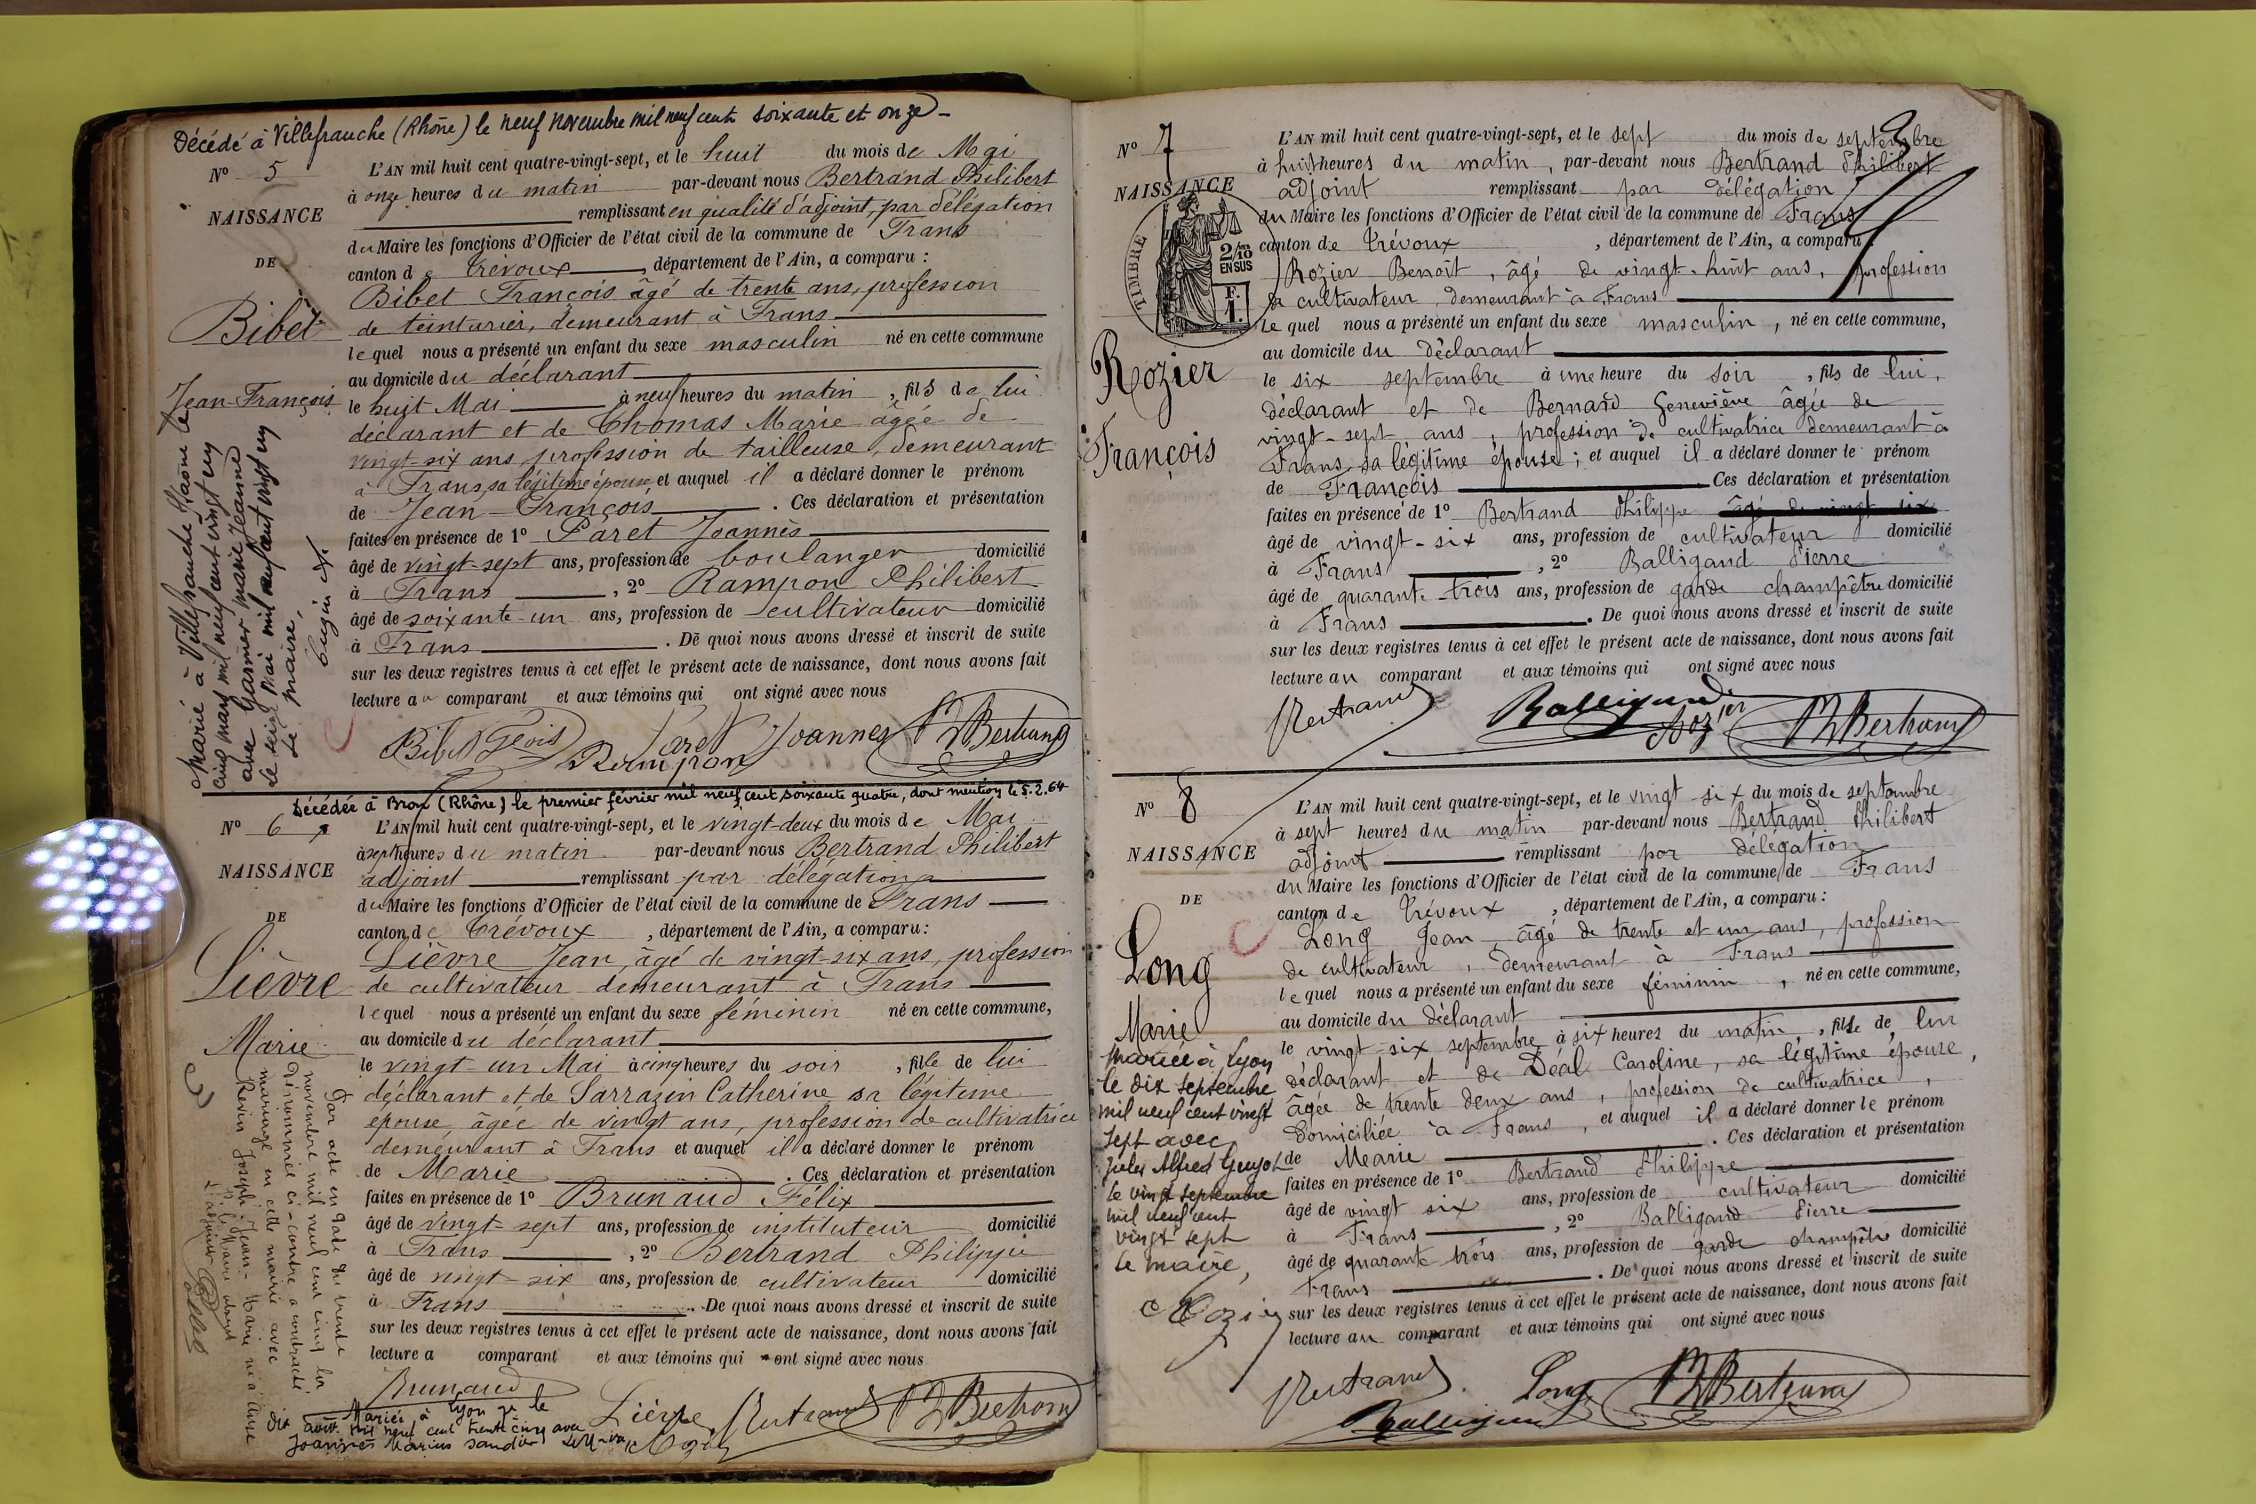 Décédé à Villefranche (Rhône) le neuf novembre mil neuf cent soixante et onze -
N° 5
NAISSANCE
DE
Bibet
Jean-François
L'AN mil huit cent quatre-vingt-sept, et le huit du mois de Mai
à onze heures du matin par-devant nous Bertrand Philibert
remplissant en qualité d'adjoint, par délégation
du Maire les fonctions d'Officier de l'état civil de la commune de Frans
canton de Trévoux, département de l'Ain, a comparu :
Bibet François âgé de trente ans, profession
de teinturier, demeurant à Frans
lequel nous a présenté un enfant du sexe masculin né en cette commune
au domicile du déclarant
le huit Mai à neuf heures du matin, fils de lui
déclarant et de Thomas Marie âgée de
vingt-six ans, profession de tailleuse, demeurant
à Frans, sa légitime épouse, et auquel il a déclaré donner le prénom
de Jean-François. Ces déclaration et présentation
faites en présence de 1° Paret Joannès
âgé de vingt-sept ans, profession de boulanger domicilié
à Frans, 2° Rampon Philibert
âgé de soixante-un ans, profession de cultivateur domicilié
à Frans. De quoi nous avons dressé et inscrit de suite
sur les deux registres tenus à cet effet le présent acte de naissance, dont nous avons fait
lecture au comparant et aux témoins qui ont signé avec nous
Marié à Villefranche s/Saône le
cinq mars mil neuf cent vingt un
avec Garnier Marie Jeanne
le seize Mai mil neuf cent vingt un
Le Maire,
Bibet Paret Joannes Bertrand
Rampon
Décédée à Bron (Rhône) le premier février mil neuf cent soixante quatre, dont mention le 5.2.64
N° 6
NAISSANCE
DE
Lièvre
Marie
L'AN mil huit cent quatre-vingt-sept, et le vingt-deux du mois de Mai
à sept heures du matin par-devant nous Bertrand Philibert
adjoint remplissant par délégation
du Maire les fonctions d'Officier de l'état civil de la commune de Frans
canton de Trévoux, département de l'Ain, a comparu :
Lièvre Jean, âgé de vingt-six ans, profession
de cultivateur demeurant à Frans
lequel nous a présenté un enfant du sexe féminin né en cette commune,
au domicile du déclarant
le vingt-un Mai à cinq heures du soir, fille de lui
déclarant et de Sarrazin Catherine sa légitime
épouse, âgée de vingt ans, profession de cultivatrice
demeurant à Frans et auquel il a déclaré donner le prénom
de Marie. Ces déclaration et présentation
faites en présence de 1° Brunaud Félix
âgé de vingt-sept ans, profession de instituteur domicilié
à Frans, 2° Bertrand Philippe
âgé de vingt-six ans, profession de cultivateur domicilié
à Frans. De quoi nous avons dressé et inscrit de suite
sur les deux registres tenus à cet effet le présent acte de naissance, dont nous avons fait
lecture a comparant et aux témoins qui ont signé avec nous
Par acte en date du trente
novembre mil neuf cent cinq la
dénommée ci-contre a contracté
mariage en cette mairie avec
Revin Joseph Jean-Marie né à Anse
Brunaud Lièvre Bertrand Bertrand
Mariée à Lyon 7e le dix
août mil neuf cent trente cinq avec
Joannès Marius Sandier
N° 7
NAISSANCE
TIMBRE
2/10 EN SUS
F. 1.
Rozier
François
L'AN mil huit cent quatre-vingt-sept, et le sept du mois de septembre
à huit heures du matin, par-devant nous Bertrand Philibert
adjoint remplissant par délégation
du Maire les fonctions d'Officier de l'état civil de la commune de Frans
canton de Trévoux, département de l'Ain, a comparu :
Rozier Benoît, âgé de vingt-huit ans, profession
de cultivateur, demeurant à Frans
lequel nous a présenté un enfant du sexe masculin, né en cette commune,
au domicile du déclarant
le six septembre à une heure du soir, fils de lui,
déclarant et de Bernard Geneviève âgée de
vingt-sept ans, profession de cultivatrice demeurant à
Frans, sa légitime épouse; et auquel il a déclaré donner le prénom
de François Ces déclaration et présentation
faites en présence de 1° Bertrand Philippe âgé de vingt six
âgé de vingt-six ans, profession de cultivateur domicilié
à Frans, 2° Balligand Pierre
âgé de quarante-trois ans, profession de garde champêtre domicilié
à Frans. De quoi nous avons dressé et inscrit de suite
sur les deux registres tenus à cet effet le présent acte de naissance, dont nous avons fait
lecture au comparant et aux témoins qui ont signé avec nous
Bertrand Balligand Rozier Bertrand
N° 8
NAISSANCE
DE
Long
Marie
L'AN mil huit cent quatre-vingt-sept, et le vingt-six du mois de septembre
à sept heures du matin par-devant nous Bertrand Philibert
adjoint remplissant par délégation
du Maire les fonctions d'Officier de l'état civil de la commune de Frans
canton de Trévoux, département de l'Ain, a comparu :
Long Jean, âgé de trente et un ans, profession
de cultivateur, demeurant à Frans
lequel nous a présenté un enfant du sexe féminin, né en cette commune,
au domicile du déclarant
le vingt-six septembre à six heures du matin, fille de lui
déclarant et de Déal Caroline, sa légitime épouse,
âgée de trente deux ans, profession de cultivatrice,
domiciliée à Frans, et auquel il a déclaré donner le prénom
de Marie. Ces déclaration et présentation
faites en présence de 1° Bertrand Philippe
âgé de vingt six ans, profession de cultivateur domicilié
à Frans, 2° Balligand Pierre
âgé de quarante trois ans, profession de garde champêtre domicilié
Frans. De quoi nous avons dressé et inscrit de suite
sur les deux registres tenus à cet effet le présent acte de naissance, dont nous avons fait
lecture au comparant et aux témoins qui ont signé avec nous
Mariée à Lyon
le dix septembre
mil neuf cent vingt
sept avec
Jules Alfred Guyot
Le vingt septembre
mil neuf cent
vingt sept
Le maire,
Bertrand Long Bertrand
Balligand